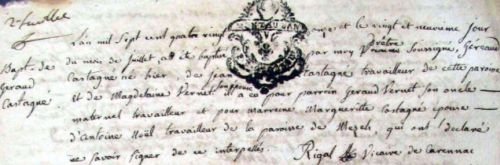 2 feuillet
L'an mil sept cent quatre vingt onze et le vingt et neuvieme jour
Bapt. de du mois de juillet, a été baptisé par moy prêtre vicaire soussigné, Geraud
Geraud Castagné né hier de Jean Castagné travailleur de cette paroisse
Castagné. et de Magdelaine Vernet. Il a eu pour parrein Geraud Vernet son oncle
maternel travailleur et pour marrene Margueritte Castagné epouse
d'antoine Noël travailleur de la paroisse de Mezels qui ont declaré
ne savoir signer de ce interpellés. Rigal Vicaire de Carennac